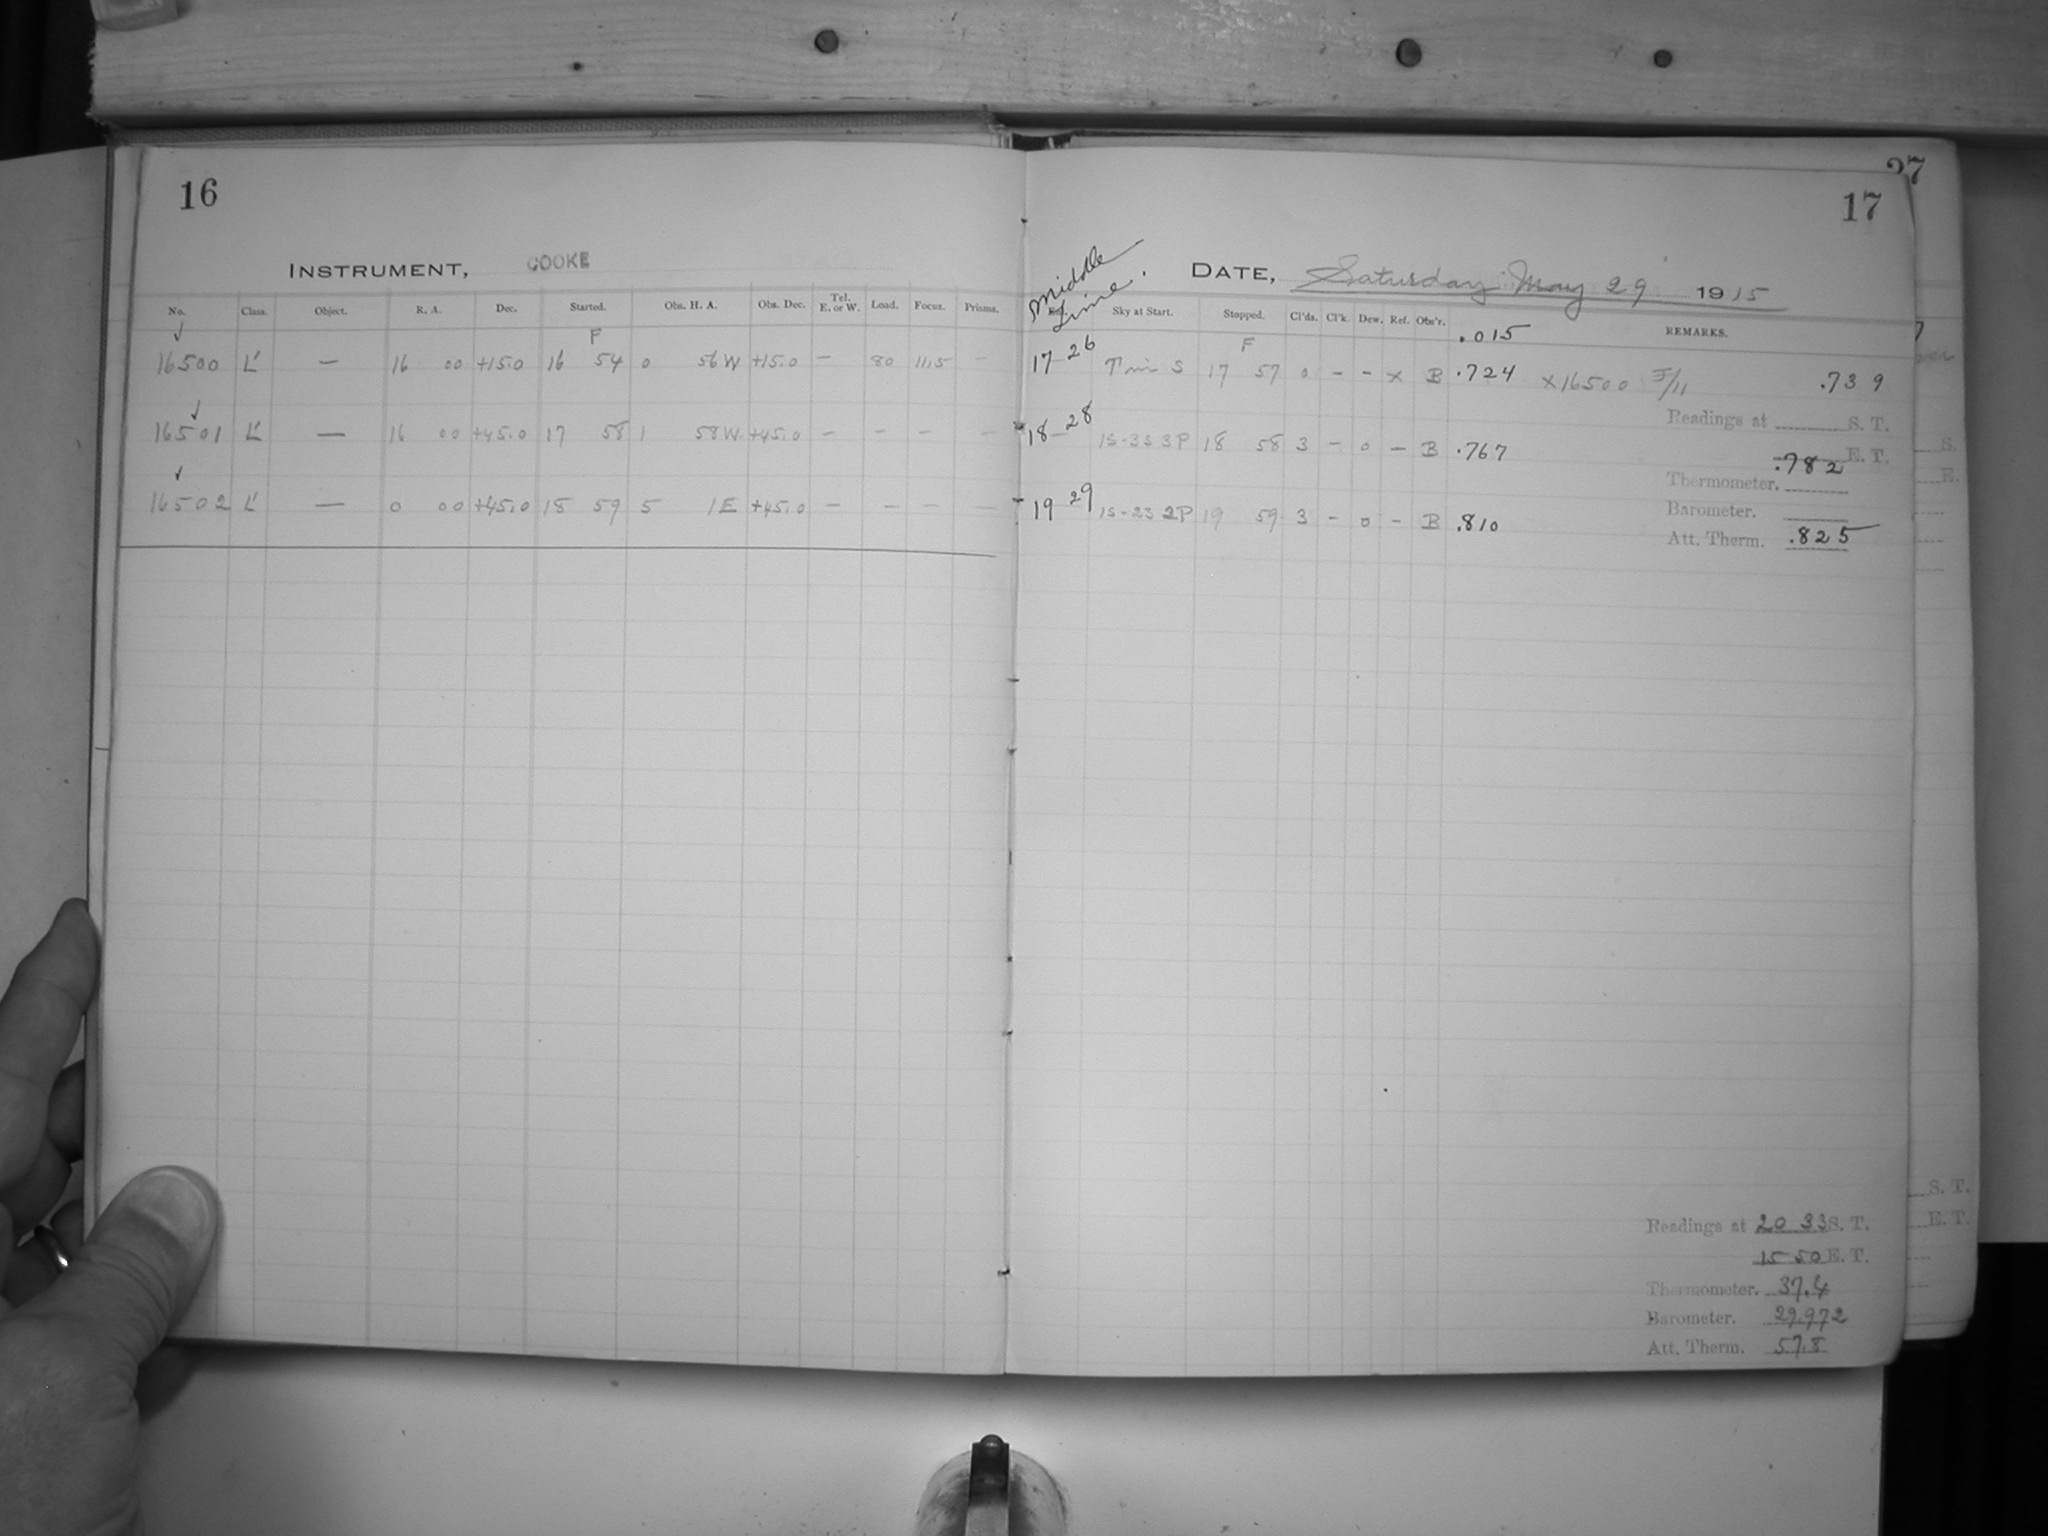 16
INSTRUMENT, COOKE
No. Class. Object. R. A. Dec. Started. Obs. H. A. Obs. Dec. Tel. E. or W. Load. Focus. Prisms.
F
16500 L' — 16 00 +15.0 16 54 0 56 W +15.0 — 80 11.5 —
16501 L' — 16 00 +45.0 17 58 1 58 W +45.0 — — — —
16502 L' — 0 00 +45.0 18 59 5 1 E +45.0 — — — —
27
17
Middle Time.
DATE, Saturday May 29 1915
Sky at Start. Stopped. Cl'ds. Cl'k. Dew. Ref. Obs'r. REMARKS.
.015
F
17 26 S 17 57 0 — — x B .724 x16500 F/11 .739
Readings at S. T.
18 28 15-33 3P 18 58 3 — 0 — B .767
E. T.
.782
Thermometer.
19 29 15-23 2P 19 59 3 — 0 — B .810
Barometer.
Att. Therm. .825
Readings at 20 33 S. T.
15 50 E. T.
Thermometer. 37.4
Barometer. 29.972
Att. Therm. 57.8
S.
E.
S. T.
E. T.